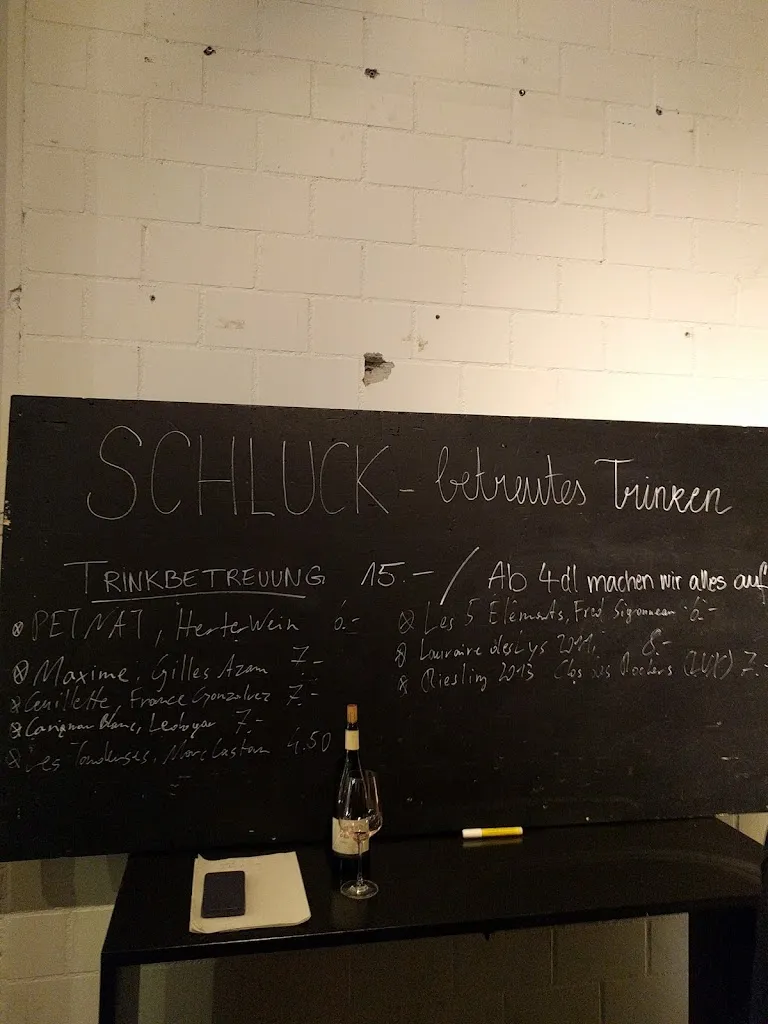 SCHLUCK - betreutes Trinken
TRINKBETREUUNG 15.- / Ab 4dl machen wir alles auf
PET NAT, HerterWein 6.-
Maxime. Gilles Azam 7.-
France Gonzalvez 7.-
Carignan Blanc, Ledogar 7.-
Les 4.50
Les 5 Éléments, Fred Sigonneau 6.-
des Lys 2011, 8.-
Riesling 2013 Clos des Rochers (LUX) 7.-